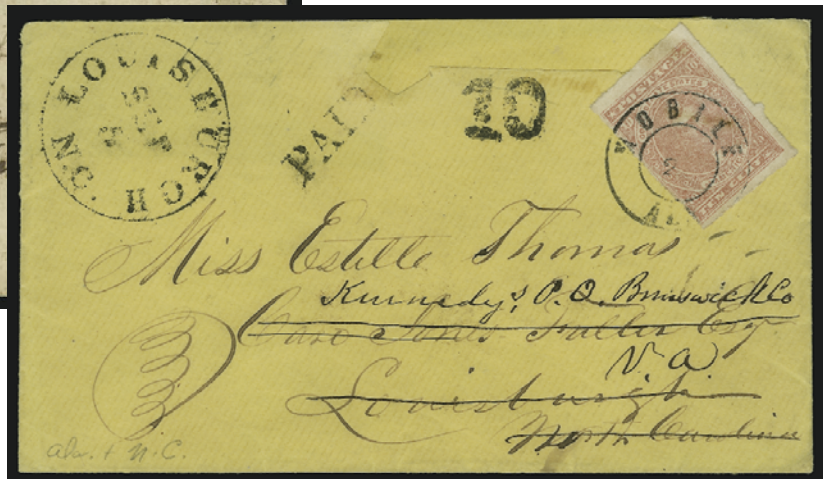 LOUISBURGH NC
SEP
5
PAID
10
POSTAGE
TEN CENTS
MOBILE
2
ALA
Miss Estelle Thomas
Kennedy's P.O. Brunswick Co
Care Jones Fuller Esq.
V.a
Louisburgh
North Carolina
Ala. + N.C.